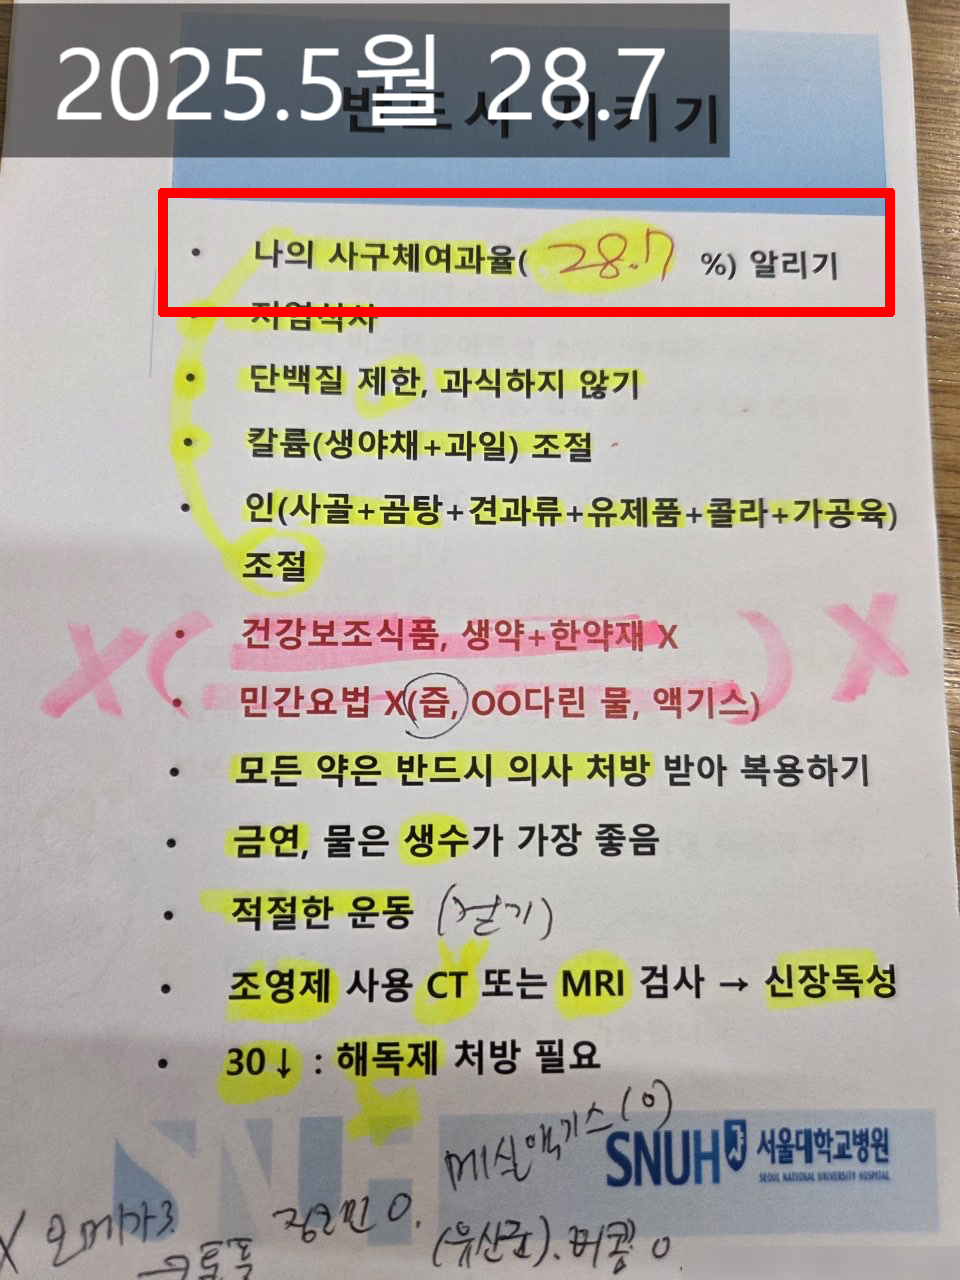 2025.5월 28.7
반드시 지키기
• 나의 사구체여과율( 28.7 %) 알리기
저염식사
• 단백질 제한, 과식하지 않기
• 칼륨(생야채+과일) 조절
• 인(사골+곰탕+견과류+유제품+콜라+가공육)
조절
X ( ) X
• 건강보조식품, 생약+한약재 X
• 민간요법 X(즙, OO다린 물, 액기스)
• 모든 약은 반드시 의사 처방 받아 복용하기
• 금연, 물은 생수가 가장 좋음
• 적절한 운동 (걷기)
• 조영제 사용 CT 또는 MRI 검사 → 신장독성
• 30↓ : 해독제 처방 필요
매실액기스(0)
SNUH 서울대학교병원
SEOUL NATIONAL UNIVERSITY HOSPITAL
SNUH
X 오메가3.
(유산균).